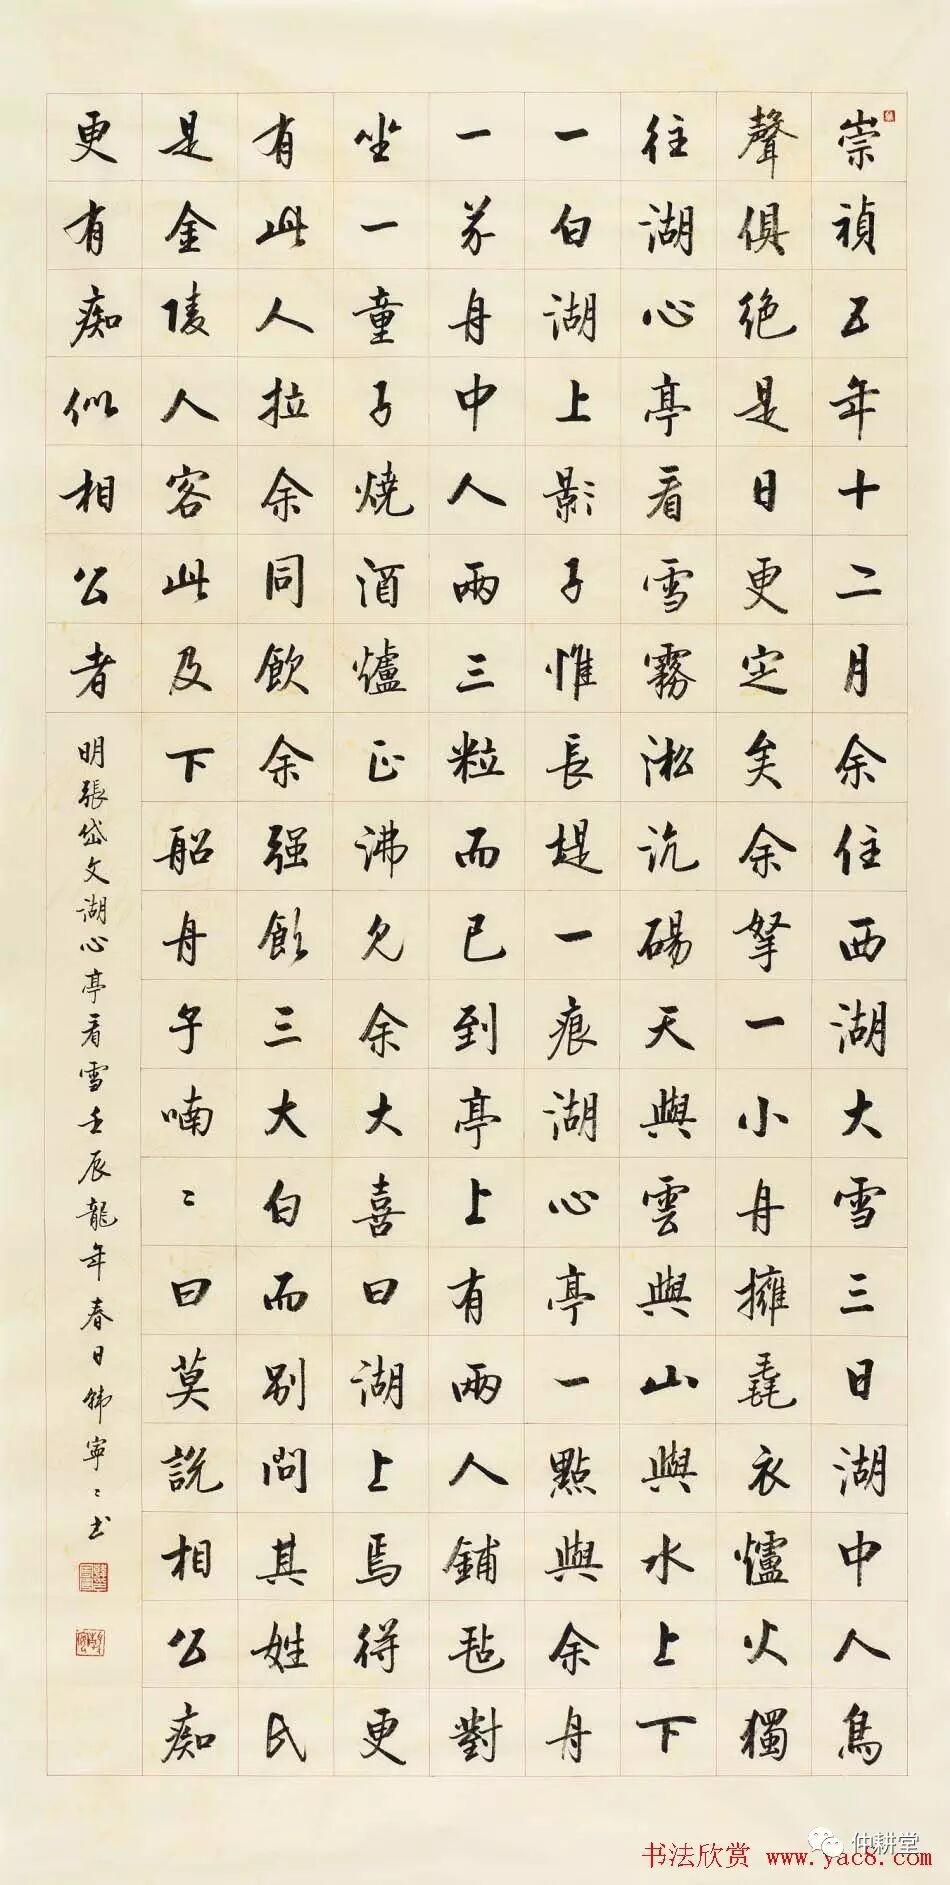 崇禎五年十二月余住西湖大雪三日湖中人鳥
聲俱絕是日更定矣余拏一小舟擁毳衣爐火獨
往湖心亭看雪霧淞沆碭天與雲與山與水上下
一白湖上影子惟長堤一痕湖心亭一點與余舟
一芥舟中人兩三粒而已到亭上有兩人鋪毡對
坐一童子燒酒爐正沸見余大喜曰湖上焉得更
有此人拉余同飲余强飲三大白而別問其姓氏
是金陵人客此及下船舟子喃〻曰莫說相公痴
更有痴似相公者
明張岱文湖心亭看雪壬辰龍年春日韩寧〻书
仲耕堂
书法欣赏 www.yac8.com